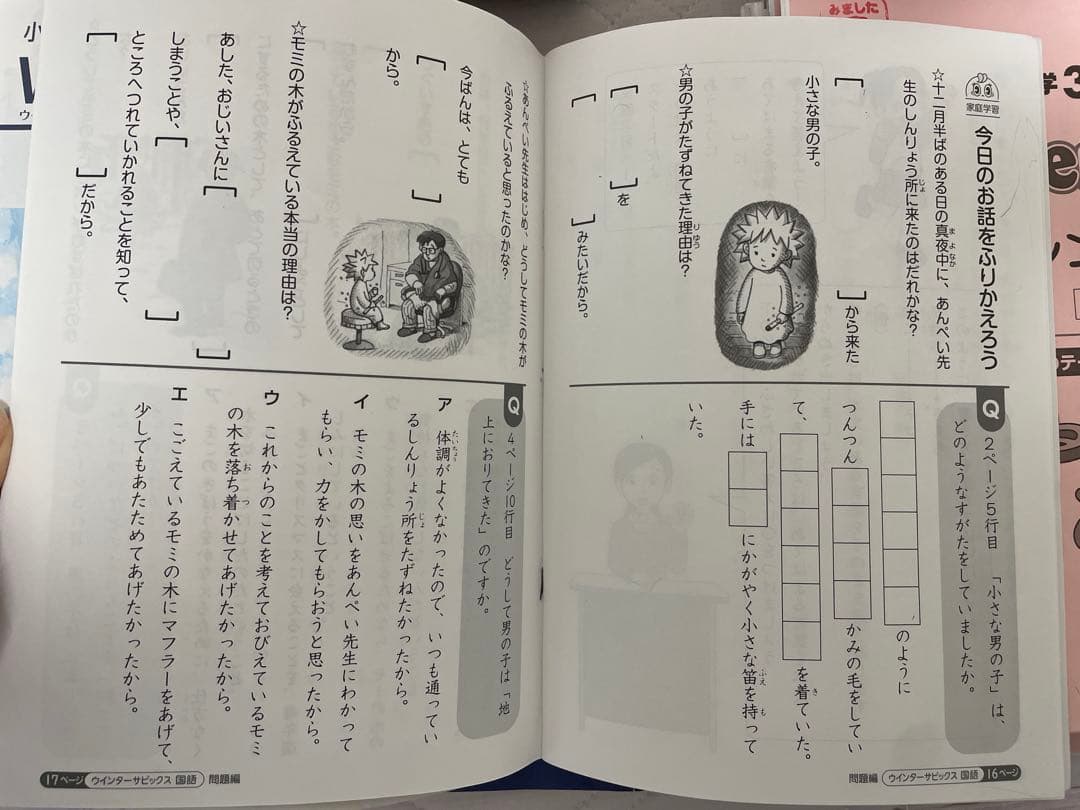 家庭学習
今日のお話をふりかえろう
☆十二月半ばのある日の真夜中に、あんぺい先
生のしんりょう所に来たのはだれかな?
[ ]から来た
小さな男の子。
☆男の子がたずねてきた理由は?
[ ]を
[ ]みたいだから。
Q
2ページ5行目 「小さな男の子」は、
どのようなすがたをしていましたか。
のように
つんつん かみの毛をしてい
て、 を着ていた。
手には にかがやく小さな笛を持って
いた。
問題編 ウインターサピックス 国語 16ページ
☆あんぺい先生ははじめ、どうしてモミの木が
ふるえていると思ったのかな?
今ばんは、とても[ ]
から。
☆モミの木がふるえている本当の理由は?
あした、おじいさんに[ ]
しまうことや、[ ]
ところへつれていかれることを知って、
[ ]だから。
Q
4ページ10行目 どうして男の子は「地
上におりてきた」のですか。
ア 体調がよくなかったので、いつも通ってい
るしんりょう所をたずねたかったから。
イ モミの木の思いをあんぺい先生にわかって
もらい、力をかしてもらおうと思ったから。
ウ これからのことを考えておびえているモミ
の木を落ち着かせてあげたかったから。
エ こごえているモミの木にマフラーをあげて、
少しでもあたためてあげたかったから。
17ページ ウインターサピックス 国語 問題編
みました
学3
小
W